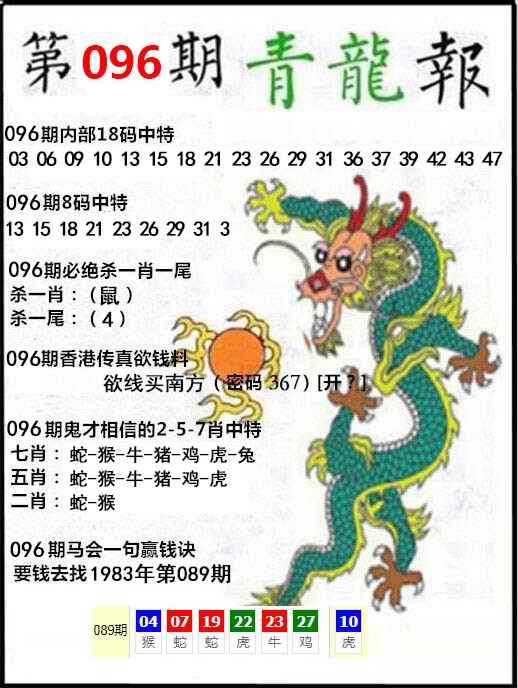 第096期 青龍報
096期内部18码中特
03 06 09 10 13 15 18 21 23 26 29 31 36 37 39 42 43 47
096期8码中特
13 15 18 21 23 26 29 31 3
096期必绝杀一肖一尾
杀一肖：（鼠）
杀一尾：（4）
096期香港传真欲钱料
欲线买南方（密码 367）[开？]
096期鬼才相信的2-5-7肖中特
七肖：蛇-猴-牛-猪-鸡-虎-兔
五肖：蛇-猴-牛-猪-鸡-虎
二肖：蛇-猴
096期马会一句赢钱诀
要钱去找1983年第089期
089期 04 07 19 22 23 27 10
猴 蛇 蛇 虎 牛 鸡 虎